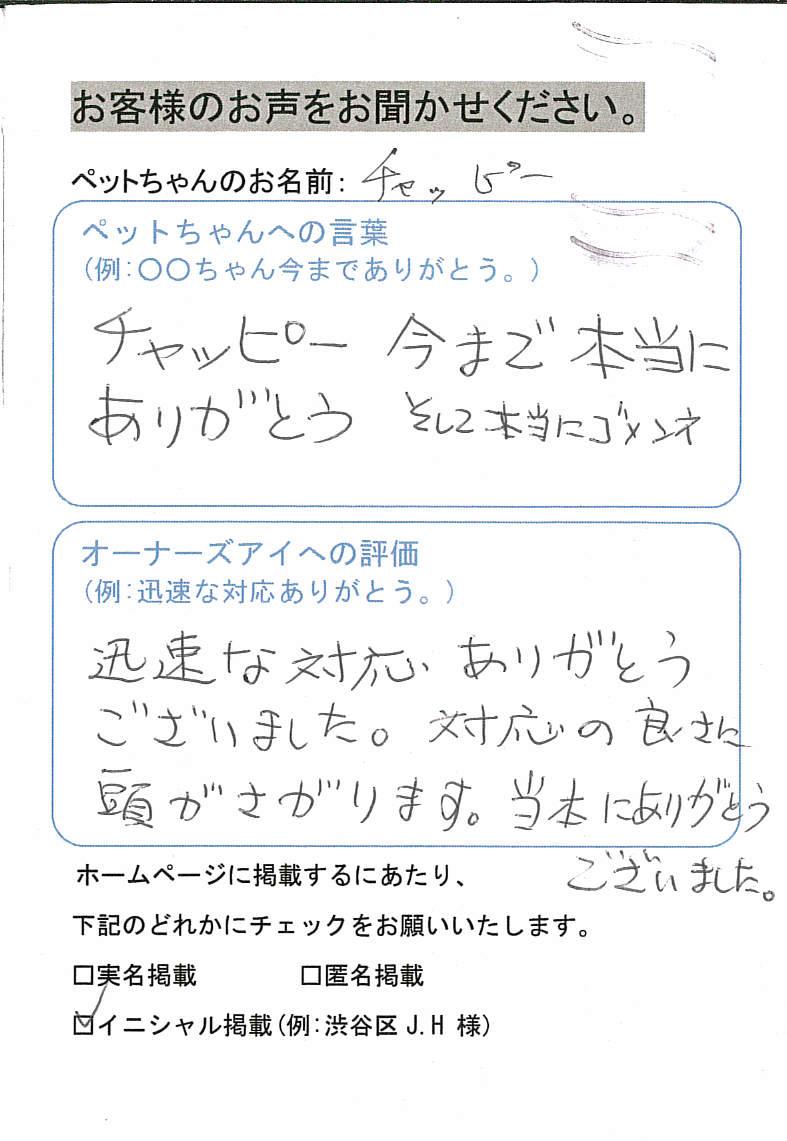 お客様のお声をお聞かせください。
ペットちゃんのお名前: チャッピー
ペットちゃんへの言葉
(例:〇〇ちゃん今までありがとう。)
チャッピー 今まで本当に
ありがとう そして本当にゴメンネ
オーナーズアイへの評価
(例:迅速な対応ありがとう。)
迅速な対応 ありがとう
ございました。対応の良さに
頭がさがります。当本にありがとう
ございました。
ホームページに掲載するにあたり、
下記のどれかにチェックをお願いいたします。
□実名掲載 □匿名掲載
☑イニシャル掲載(例:渋谷区 J.H 様)